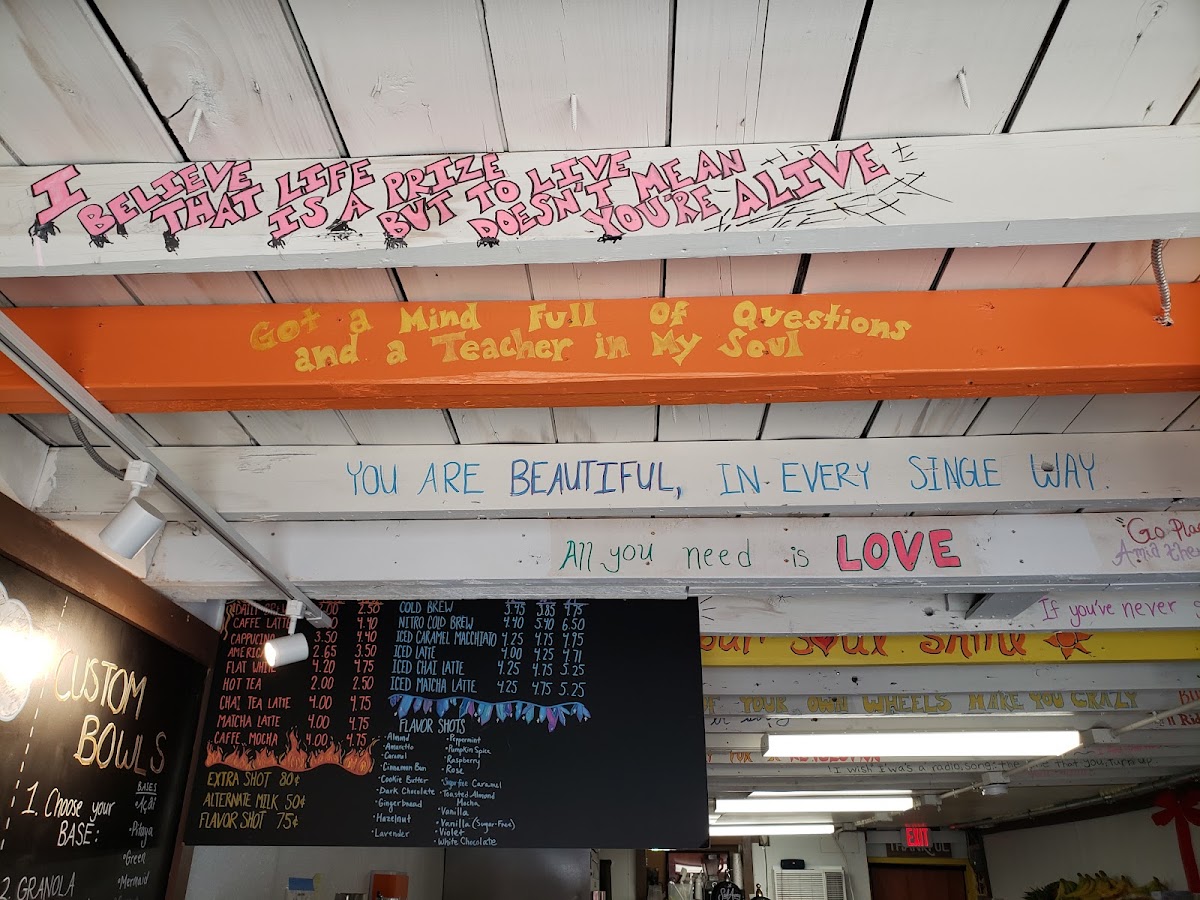 I BELIEVE THAT LIFE IS A PRIZE BUT TO LIVE DOESN'T MEAN YOU'RE ALIVE
Got a Mind Full Of Questions
and a Teacher in My Soul
YOU ARE BEAUTIFUL, IN EVERY SINGLE WAY.
All you need is LOVE
"Go Pla
Amid the
If you've never
Soul Shine
YOUR OWN WHEELS MAKE YOU CRAZY
I wish I was a radio song; the one that you turn up
EXIT
THANKFUL
CUSTOM
BOWLS
1. Choose your
BASE:
BASES
•Açaí
•Pitaya
•Green
•Mermaid
2. GRANOLA
2.50
CAFFE LATTE 4.40
CAPPUCINO 3.50 4.40
AMERICA 2.65 3.50
FLAT WHITE 4.20 4.75
HOT TEA 2.00 2.50
CHAI TEA LATTE 4.00 4.75
MATCHA LATTE 4.00 4.75
CAFFE MOCHA 4.00 4.75
EXTRA SHOT 80¢
ALTERNATE MILK 50¢
FLAVOR SHOT 75¢
COLD BREW 3.45 3.85 4.75
NITRO COLD BREW 4.40 5.40 6.50
ICED CARAMEL MACCHIATO 4.25 4.75 4.95
ICED LATE 4.00 4.25 4.71
ICED CHAI LATTE 4.25 4.75 5.25
ICED MATCHA LATTE 4.25 4.75 5.25
FLAVOR SHOTS
•Almond
•Amaretto
•Caramel
•Cinnamon Bun
•Cookie Butter
•Dark Chocolate
•Gingerbread
•Hazelnut
•Lavender
•Peppermint
•Pumpkin Spice
•Raspberry
•Rose
•Sugarfree Caramel
•Toasted Almond
Mocha
•Vanilla
•Vanilla (Sugar-Free)
•Violet
•White Chocolate